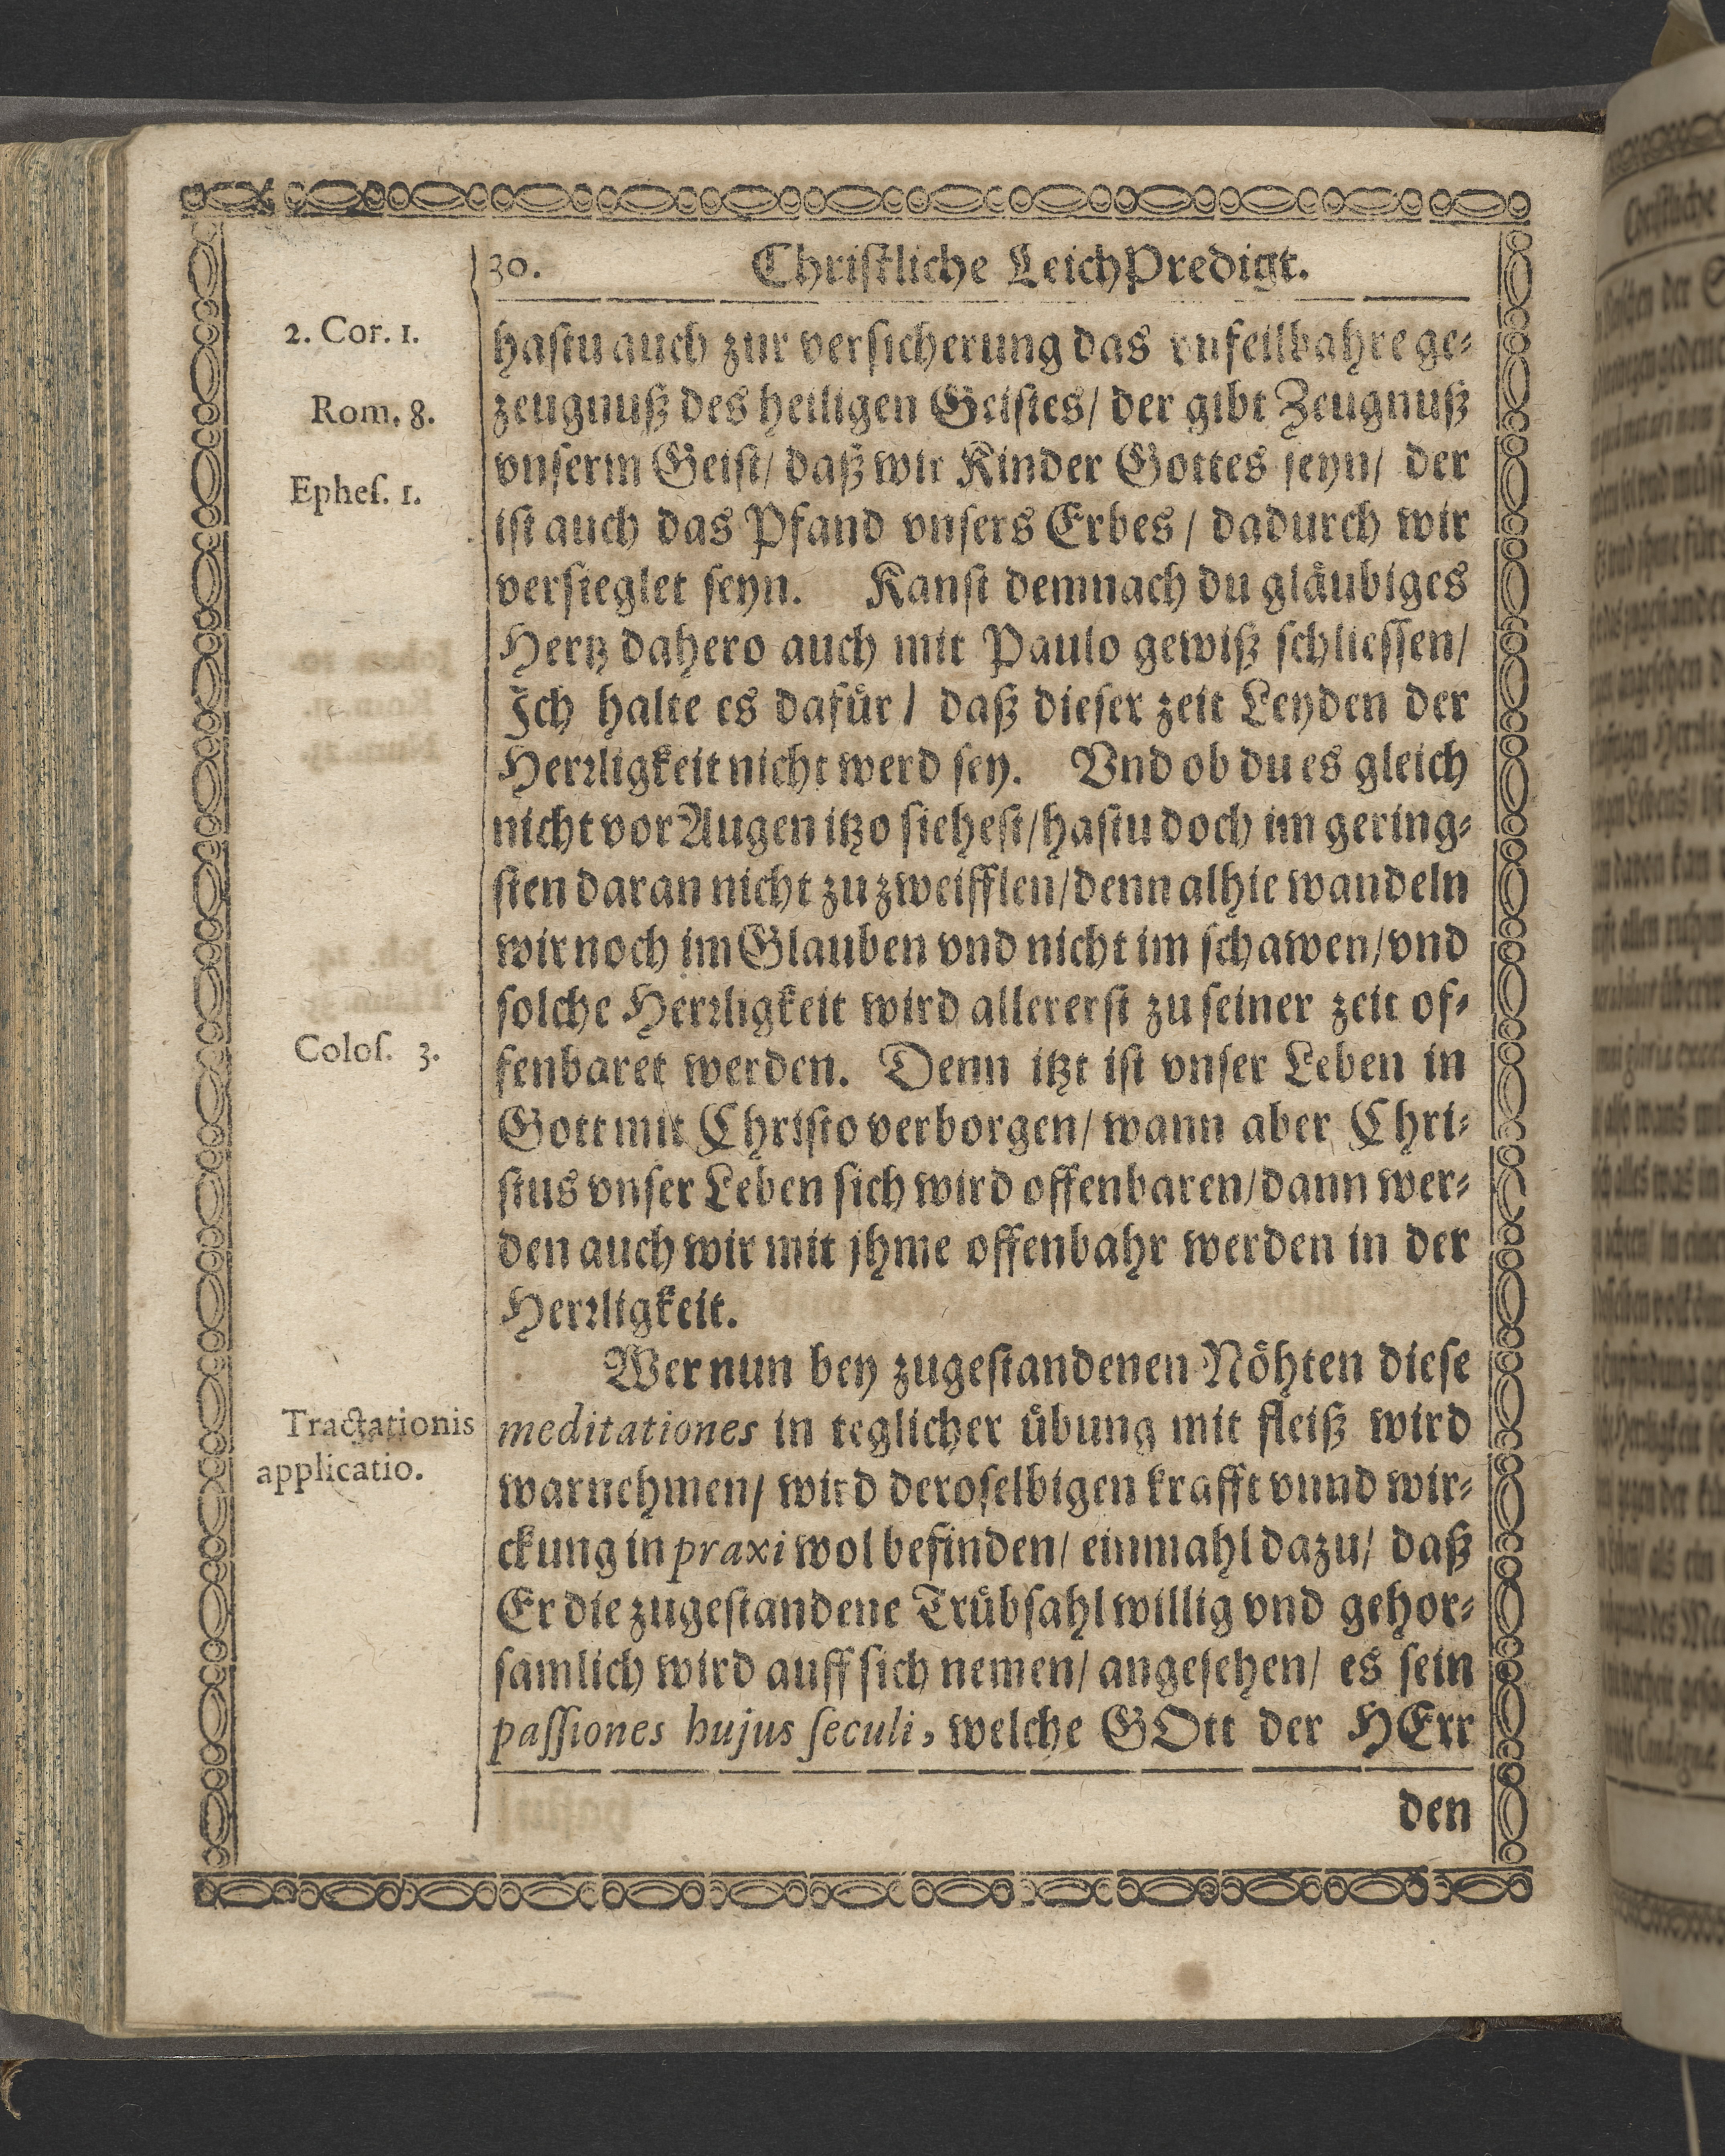 30. Christliche LeichPredigt.
2. Cor. 1.
Rom. 8.
Epheſ. 1.
Coloſ. 3.
Tractationis
applicatio.
haſtu auch zur verſicherung das vnfeilbahre ge⸗
zeugnuß des heiligen Geiſtes/ der gibt Zeugnuß
vnſerm Geiſt/ daß wir Kinder Gottes ſeyn/ der
iſt auch das Pfand vnſers Erbes/ dadurch wir
verſieglet ſeyn. Kanſt demnach du glaͤubiges
Hertz dahero auch mit Paulo gewiß ſchlieſſen/
Jch halte es dafuͤr/ daß dieſer zeit Leyden der
Herꝛligkeit nicht werd ſey. Vnd ob du es gleich
nicht vor Augen itzo ſieheſt/ haſtu doch im gering⸗
ſten daran nicht zu zweifflen/ denn alhie wandeln
wir noch im Glauben vnd nicht im ſchawen/ vnd
ſolche Herꝛligkeit wird allererſt zu ſeiner zeit of⸗
fenbaret werden. Denn itzt iſt vnſer Leben in
Gott mit Chriſto verborgen/ wann aber Chri⸗
ſtus vnſer Leben ſich wird offenbaren/ dann wer⸗
den auch wir mit jhme offenbahr werden in der
Herꝛligkeit.
Wer nun bey zugeſtandenen Noͤhten dieſe
meditationes in teglicher uͤbung mit fleiß wird
warnehmen/ wird deroſelbigen krafft vnnd wir⸗
ckung in praxi wol befinden/ einmahl dazu/ daß
Er die zugeſtandene Truͤbſahl willig vnd gehor⸗
ſamlich wird auff ſich nemen/ angeſehen/ es ſein
paſſiones hujus ſeculi, welche GOtt der HErr
den